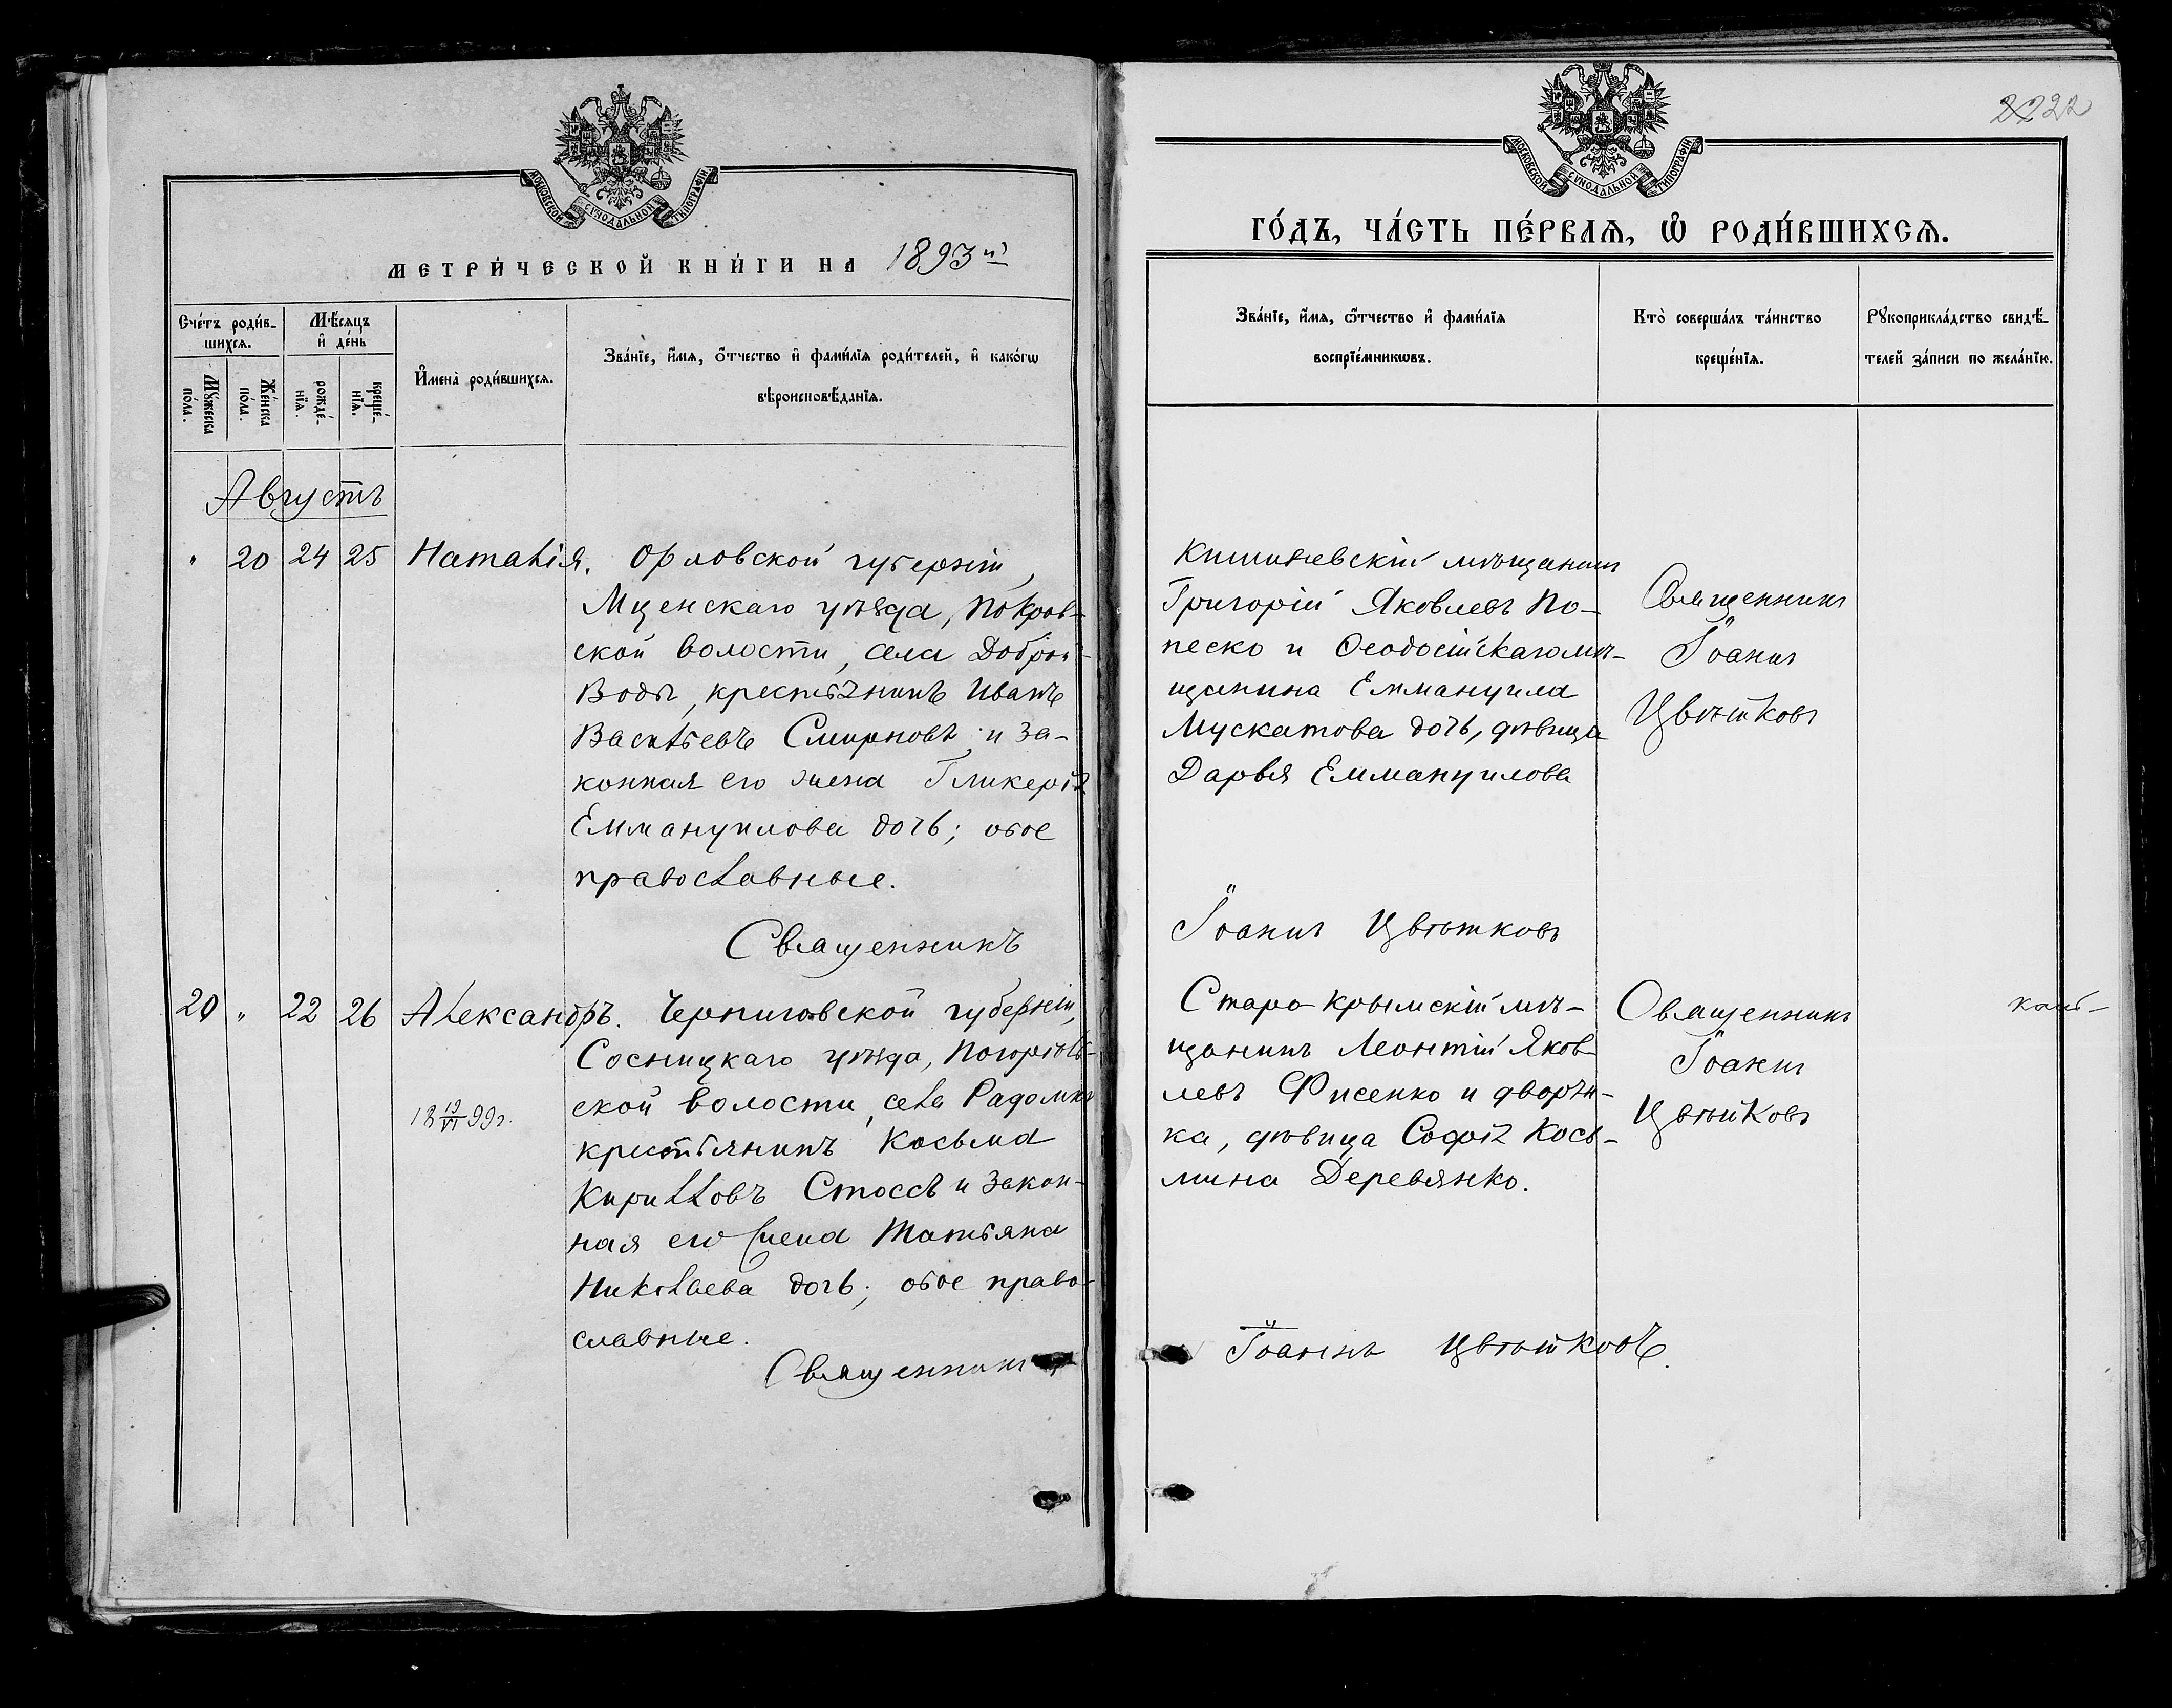 МОСКОВСКОЙ СѴНОДАЛЬНОЙ ТИПОГРАФІИ
МЕТРИ́ЧЕСКОЙ КНИ́ГИ НА 1893й
Сче́тъ роди́в-
шихсѧ.
Мꙋ́жеска
по́ла.
Же́нска
по́ла.
Мѣ́сѧцъ
и҆ де́нь
рожде́-
нїѧ.
креще́-
нїѧ.
И҆мена̀ роди́вшихсѧ.
Зва́нїе, и҆́мѧ, ѻ҆́тчество и҆ фами́лїѧ роди́телей, и҆ како́гѡ
вѣроисповѣ́данїѧ.
Августъ
" 20 24 25 Наталія. Орловской губерніи,
Мценскаго уѣзда, Покров-
ской волости, села Доброй-
Воды, крестьянинъ Иванъ
Васильевъ Смирновъ и за-
конная его жена Гликерія
Еммануилова дочь; обое
православные.
Священникъ
20 " 22 26 Александръ. Черниговской губерніи,
Сосницкаго уѣзда, Погорѣль-
ской волости, села Радомки
крестьянинъ Косьма
Кирилловъ Стоссъ и закон-
ная его жена Татьяна
Николаева дочь; обое право-
славные.
Священникъ
18 19/VI 99 г.
2222
МОСКОВСКОЙ СѴНОДАЛЬНОЙ ТИПОГРАФІИ
ГО́ДЪ, ЧА́СТЬ ПЕ́РВАѦ, Ѡ҆ РОДИ́ВШИХСѦ.
Зва́нїе, и҆́мѧ, ѻ҆́тчество и҆ фами́лїѧ
воспрїе́мникѡвъ.
Кто̀ соверша́лъ та́инство
креще́нїѧ.
Рꙋкоприкла́дство свидѣ́-
телей за́писи по жела́нїю.
Кишиневскій мѣщанинъ
Григорій Яковлевъ По-
песко и Ѳеодосійскаго мѣ-
щанина Еммануила
Мускатова дочь, дѣвица
Дарья Еммануилова
Священникъ
Іоаннъ
Цвѣтковъ
Іоаннъ Цвѣтковъ
Старо-Крымскій мѣ-
щанинъ Леонтій Яков-
левъ Фисенко и дворян-
ка, дѣвица Софія Кось-
мина Деревянко.
Священникъ
Іоаннъ
Цвѣтковъ
Іоаннъ Цвѣтковъ.